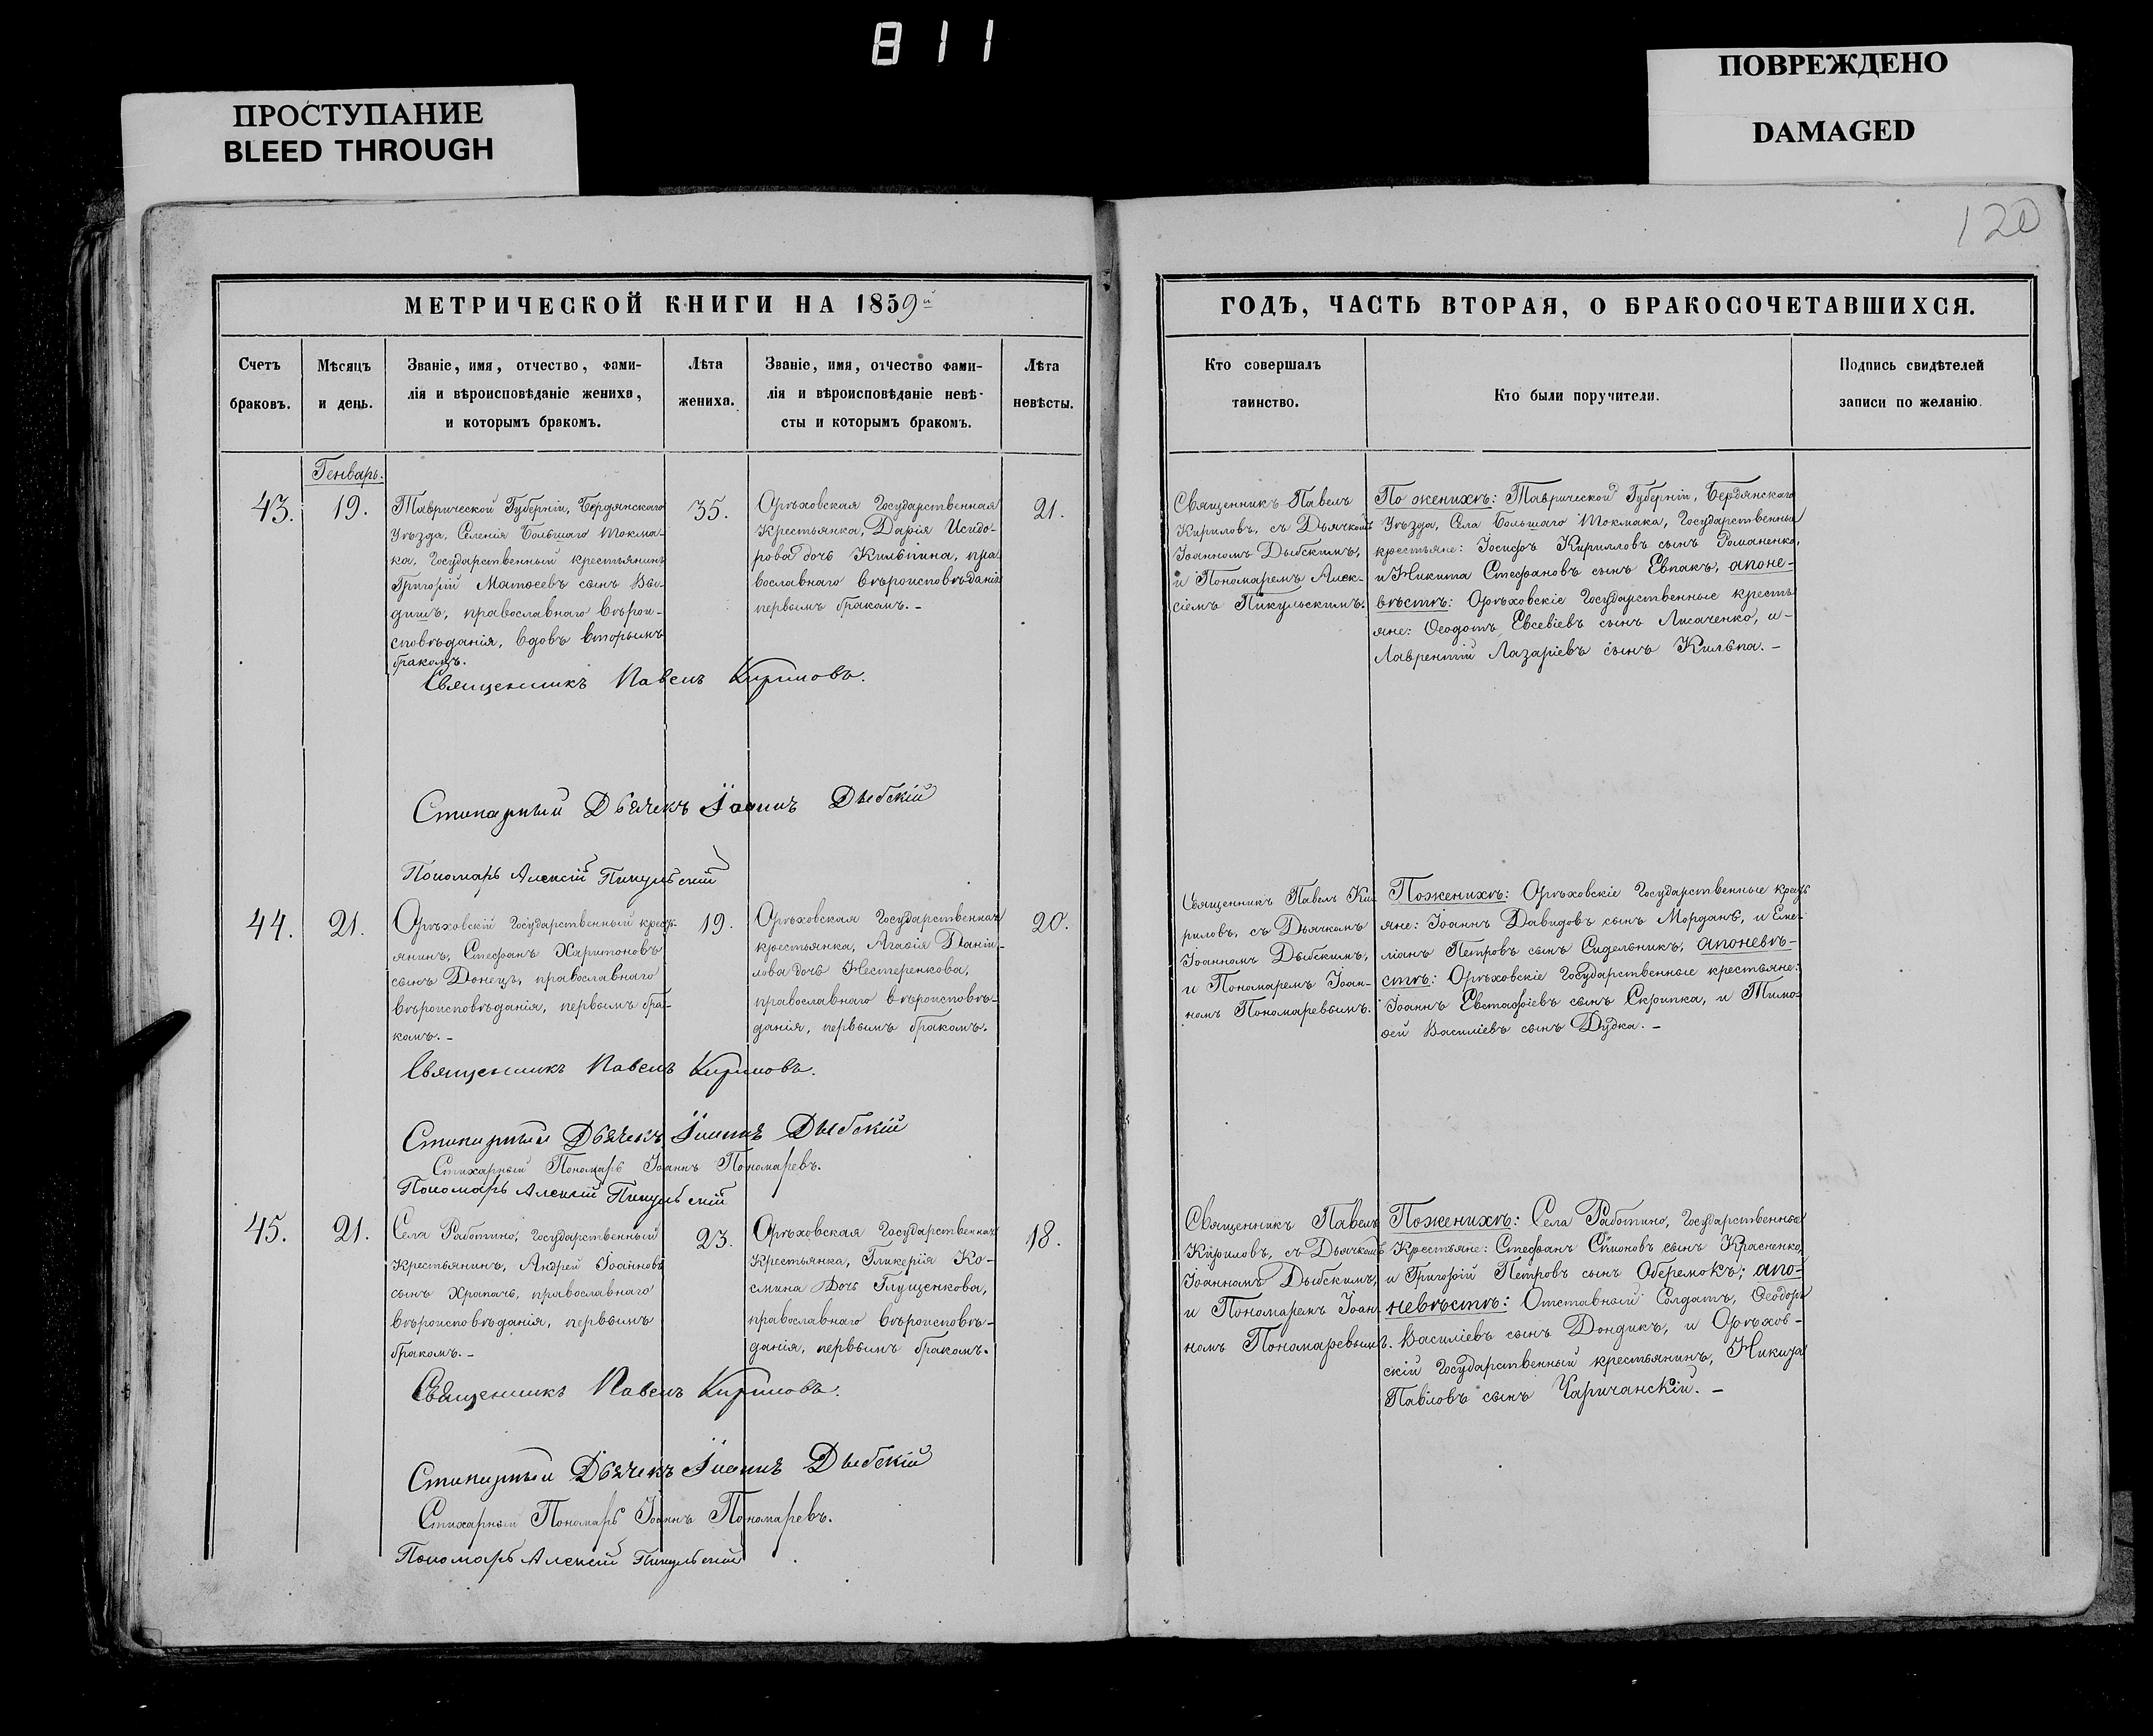 811
ПРОСТУПАНИЕ
BLEED THROUGH
ПОВРЕЖДЕНО
DAMAGED
120
МЕТРИЧЕСКОЙ КНИГИ НА 1859й
Счетъ
браковъ.
Мѣсяцъ
и день.
Званіе, имя, отчество, фами-
лія и вѣроисповѣданіе жениха,
и которымъ бракомъ.
Лѣта
жениха.
Званіе, имя, отчество фами-
лія и вѣроисповѣданіе невѣ-
сты и которымъ бракомъ.
Лѣта
невѣсты.
Генварь.
43.
19.
Таврической Губерніи, Бердянскаго
Уѣзда, Селенія Большаго Токма-
ка, Государственный крестьянинъ
Григорій Матѳеевъ сынъ Вы-
дишъ, православнаго вѣрои-
сповѣданія, вдовъ вторымъ
бракомъ.
35.
Орѣховская Государственная
Крестьянка, Дарія Исидо-
рова дочь Кильпина, пра-
вославнаго вѣроисповѣданія
первымъ бракомъ. -
21.
Священникъ Павелъ Кириловъ.
Стихарный Дьячекъ Іоаннъ Дыбскій
Пономарь Алексій Пикульскій
44.
21.
Орѣховскій Государственный крест-
янинъ, Стефанъ Харитоновъ
сынъ Донецъ, православнаго
вѣроисповѣданія, первымъ бра-
комъ. -
19.
Орѣховская Государственная
крестьянка, Агаѳія Даніи-
лова дочь Нестеренкова,
православнаго вѣроисповѣ-
данія, первымъ бракомъ.
20.
Священникъ Павелъ Кириловъ.
Стихарный Дьячекъ Іоаннъ Дыбскій
Стихарный Пономарь Іоаннъ Пономаревъ.
Пономарь Алексій Пикульскій
45.
21.
Села Работино, Государственный
Крестьянинъ, Андрей Іоанновъ
сынъ Храпачъ, православнаго
вѣроисповѣданія, первымъ
бракомъ. -
23.
Орѣховская Государственная
Крестьянка, Гликерія Ко-
смина Дочь Глущенкова,
православнаго вѣроисповѣ-
данія, первымъ бракомъ.
18.
Священникъ Павелъ Кириловъ.
Стихарный Дьячекъ Іоаннъ Дыбскій
Стихарный Пономарь Іоаннъ Пономаревъ.
Пономарь Алексій Пикульскій
ГОДЪ, ЧАСТЬ ВТОРАЯ, О БРАКОСОЧЕТАВШИХСЯ.
Кто совершалъ
таинство.
Кто были поручители.
Подпись свидѣтелей
записи по желанію.
Священникъ Павелъ
Кириловъ, съ Дьячкомъ
Іоанномъ Дыбскимъ,
и Пономаремъ Алек-
сіемъ Пикульскимъ.
По женихѣ: Таврической Губерніи, Бердянскаго
Уѣзда, Села Большаго Токмака, Государственные
крестьяне: Іосифъ Кирилловъ сынъ Романенко,
и Никита Стефановъ сынъ Евпакъ, апоне-
вѣстѣ: Орѣховскіе Государственные кресть
яне: Ѳеодотъ Евсевіевъ сынъ Лисаченко, и -
Лаврентій Лазаріевъ сынъ Кильпа. -
Священникъ Павелъ Ки-
риловъ, съ Дьячкомъ
Іоанномъ Дыбскимъ,
и Пономаремъ Іоан-
номъ Пономаревымъ.
Поженихѣ: Орѣховскіе Государственные крест
яне: Іоаннъ Давидовъ сынъ Морданъ, и Еме-
ліанъ Петровъ сынъ Сидельникъ, апоневѣ-
стѣ: Орѣховскіе Государственные крестьяне:
Іоаннъ Евстафіевъ сынъ Скрипка, и Тимо-
ѳей Василіевъ сынъ Дудка. -
Священникъ Павелъ
Кириловъ, съ Дьячкомъ
Іоанномъ Дыбскимъ,
и Пономаремъ Іоан-
номъ Пономаревымъ.
Поженихѣ: Села Работино, Государственные
Крестьяне: Стефанъ Симоновъ сынъ Красненко,
и Григорій Петровъ сынъ Оберемокъ; апо-
невѣстѣ: Отставный Солдатъ, Ѳеодоръ
Василіевъ сынъ Дондикъ, и Орѣхов-
скій Государственный крестьянинъ, Никита
Павловъ сынъ Чаричанскій. -